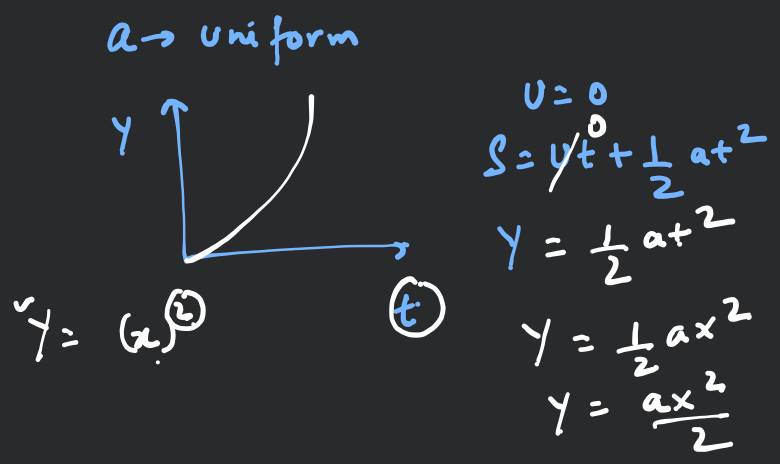 a → uniform
Y
t
Y = (x)²
U = 0
0
S = ut + 1/2 at²
Y = 1/2 at²
Y = 1/2 ax²
Y = ax²/2